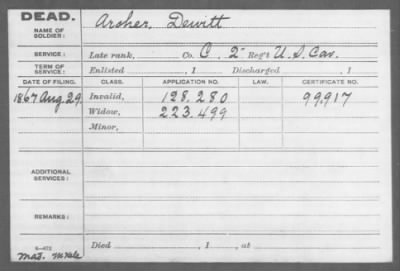 DEAD.
NAME OF SOLDIER: Archer, Dewitt
SERVICE: Late rank, Co. C. 2" Reg't U.S. Cav.
TERM OF SERVICE: Enlisted , 1 Discharged , 1
DATE OF FILING. CLASS. APPLICATION NO. LAW. CERTIFICATE NO.
1867 Aug. 29. Invalid, 128.280 99.917
Widow, 223.499
Minor,
ADDITIONAL SERVICES:
REMARKS:
Died , 1 , at